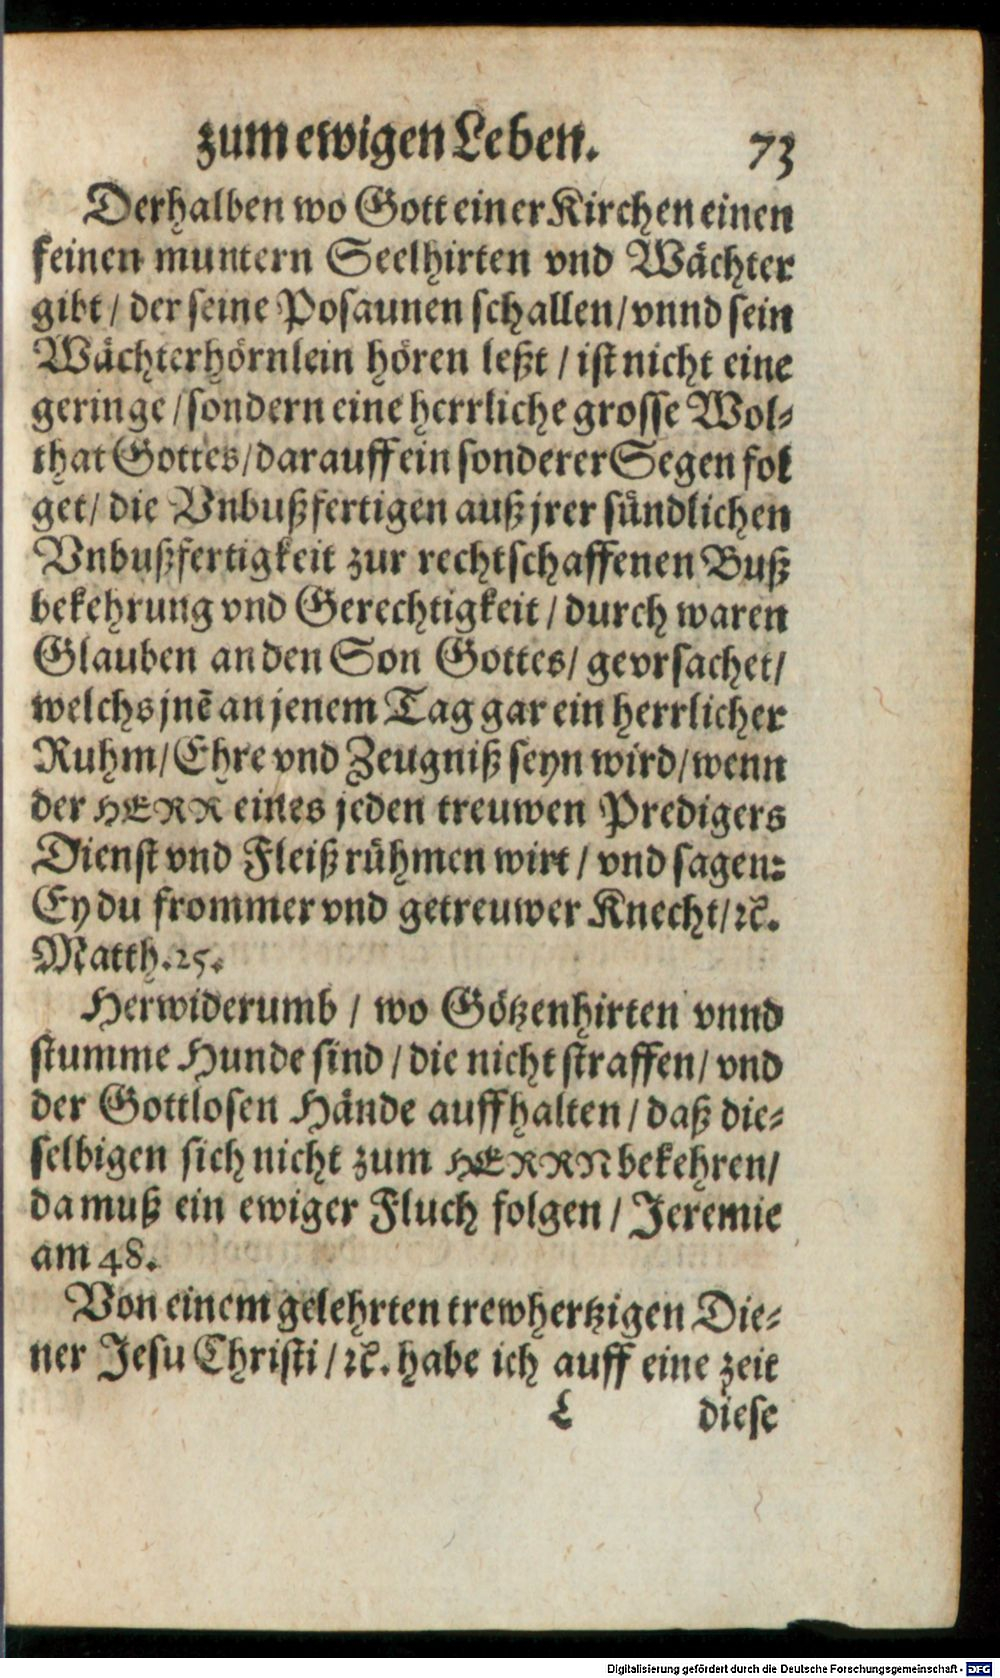 zum ewigen Leben. 73
Derhalben wo Gott einer Kirchen einen
feinen muntern Seelhirten vnd Wächter
gibt / der seine Posaunen schallen / vnnd sein
Wächterhörnlein hören leßt / ist nicht eine
geringe / sondern eine herrliche grosse Wol-
that Gottes / darauff ein sonderer Segen fol
get / die Vnbußfertigen auß jrer sündlichen
Vnbußfertigkeit zur rechtschaffenen Buß
bekehrung vnd Gerechtigkeit / durch waren
Glauben an den Son Gottes / gevrsachet /
welchs jnē an jenem Tag gar ein herrlicher
Ruhm / Ehre vnd Zeugniß seyn wird / wenn
der HERR eines jeden treuwen Predigers
Dienst vnd Fleiß rühmen wirt / vnd sagen:
Ey du frommer vnd getreuwer Knecht / ꝛc.
Matth. 25.
Herwiderumb / wo Götzenhirten vnnd
stumme Hunde sind / die nicht straffen / vnd
der Gottlosen Hände auffhalten / daß die-
selbigen sich nicht zum HERRN bekehren /
da muß ein ewiger Fluch folgen / Jeremie
am 48.
Von einem gelehrten trewhertzigen Die-
ner Jesu Christi / ꝛc. habe ich auff eine zeit
L diese
Digitalisierung gefördert durch die Deutsche Forschungsgemeinschaft - DFG